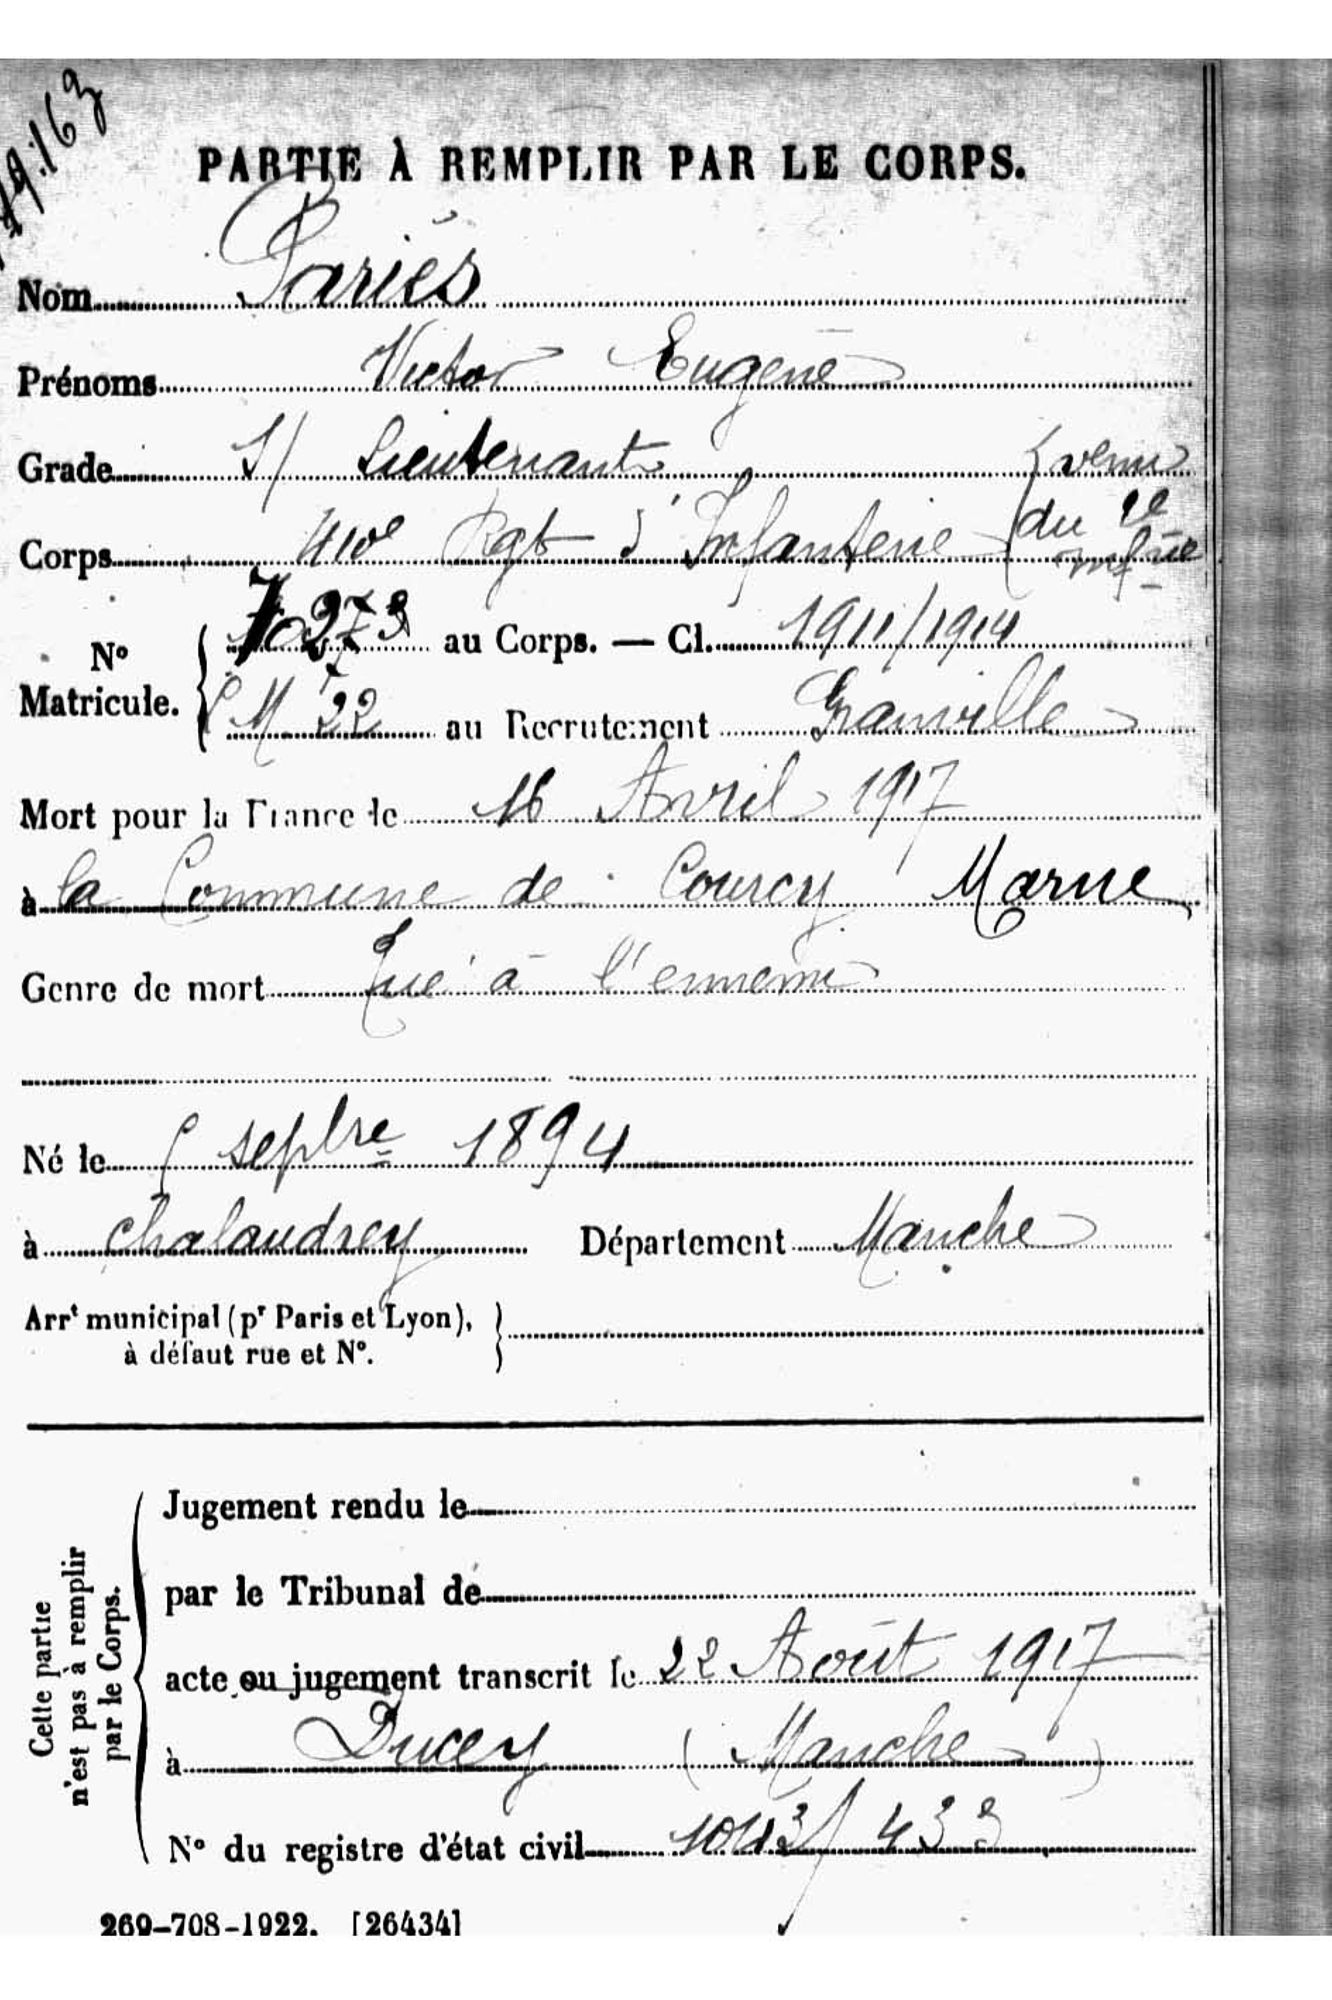 PARTIE À REMPLIR PAR LE CORPS.
Nom Pariés
Prénoms Victor Eugène
Grade S/ Lieutenant (venu
Corps 410e Rgt d'Infanterie (du 2e
infrie
No Matricule. { 10273 au Corps. — Cl. 1911/1914
M 22 au Recrutement Granville
Mort pour la France le 16 Avril 1917
à la Commune de Courcy Marne
Genre de mort Tué à l'ennemi
Né le septbre 1894
à Chalandrey Département Manche
Arrt municipal (pr Paris et Lyon),
à défaut rue et No.
Cette partie
n'est pas à remplir
par le Corps.
Jugement rendu le
par le Tribunal de
acte ou jugement transcrit le 22 Août 1917
à Ducey (Manche)
No du registre d'état civil 1043/433
269-708-1922. [26434]